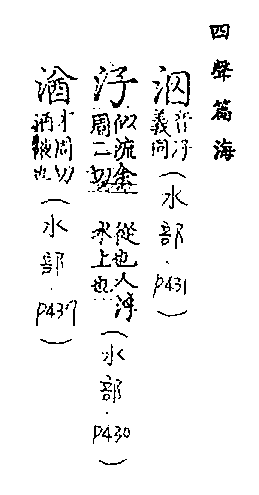 四聲篇海
泅 音汓
義同(水部.p431)
汓 似流余
周二切 從也人浮
水上也(水部.p430)
湭 才周切
酒也(水部.p437)